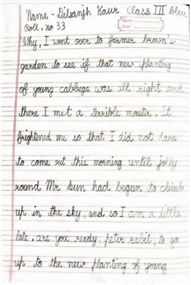 Name - Dilsanjh Kaur Class III Blue
Roll. no 33
Why, I went over to farmer brown's
garden to see if that new planting
of young cabbage was all right and
there I met a terrible monster. It
frightened me so that I did not dare
to come out this morning until jolly
round Mr Sun had begun to climb
up in the sky, and so I am a little
late. are you ready, peter rabbit, to go
up to the new planting of young